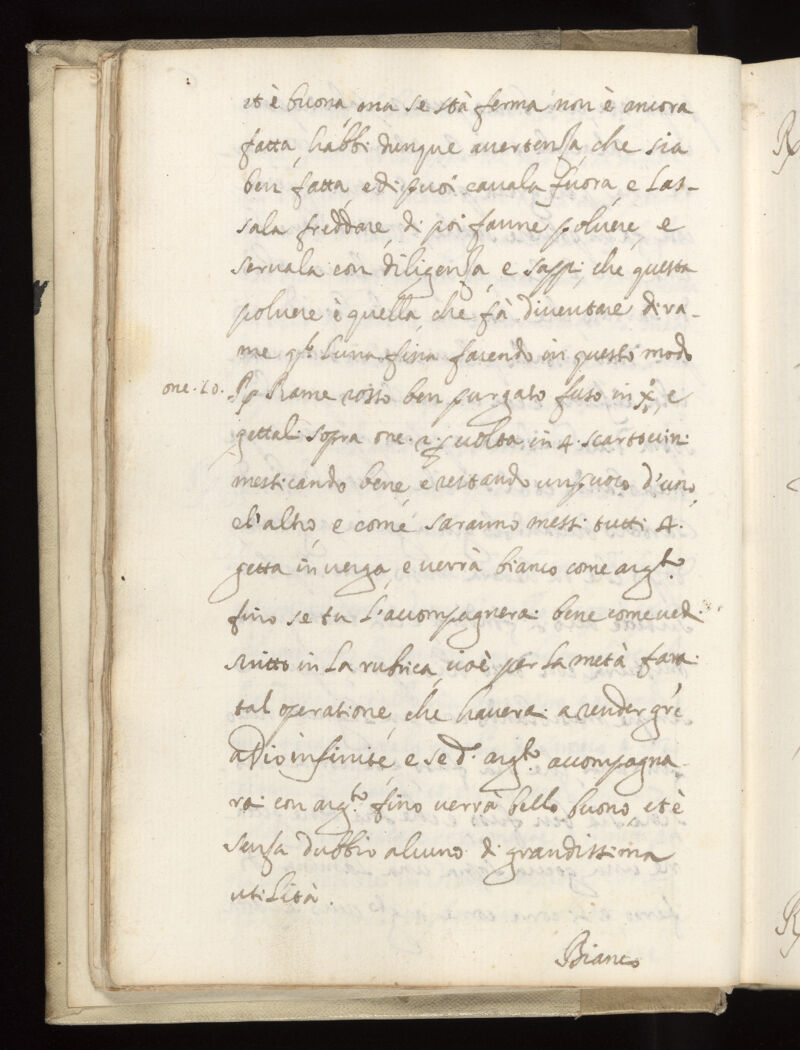 et è buona, ma se stà ferma non è ancora
fatta, habbi dunque avertenza, che sia
ben fatta, e di puoi cavala fuora, e Las-
sala freddare, di poi fanne polvere, e
servala con diligenza, e sappi, che questa
polvere è quella, che fà diventare di ra-
me Luna fina facendo in questo modo
onc. 10. Rp Rame rosso ben purgato fuso in e
gettali sopra onc. 2. volta in 4. scartocini
mesticando bene, e restando un puoco d'uno,
e l'altro, e come saranno messi tutti 4.
getta in verga, e verrà bianco come arg.to
fino se tu l'accompagnerai bene come vedi
scritto in La rubrica, cioè per La metà farai
tal operatione, che haverai a render gr.e
a Dio infinite, e se d.o arg.to accompagna-
rai con arg.to fino verrà bello, buono, et è
senza dubbio alcuno di grandissima
utilità.
Bianco